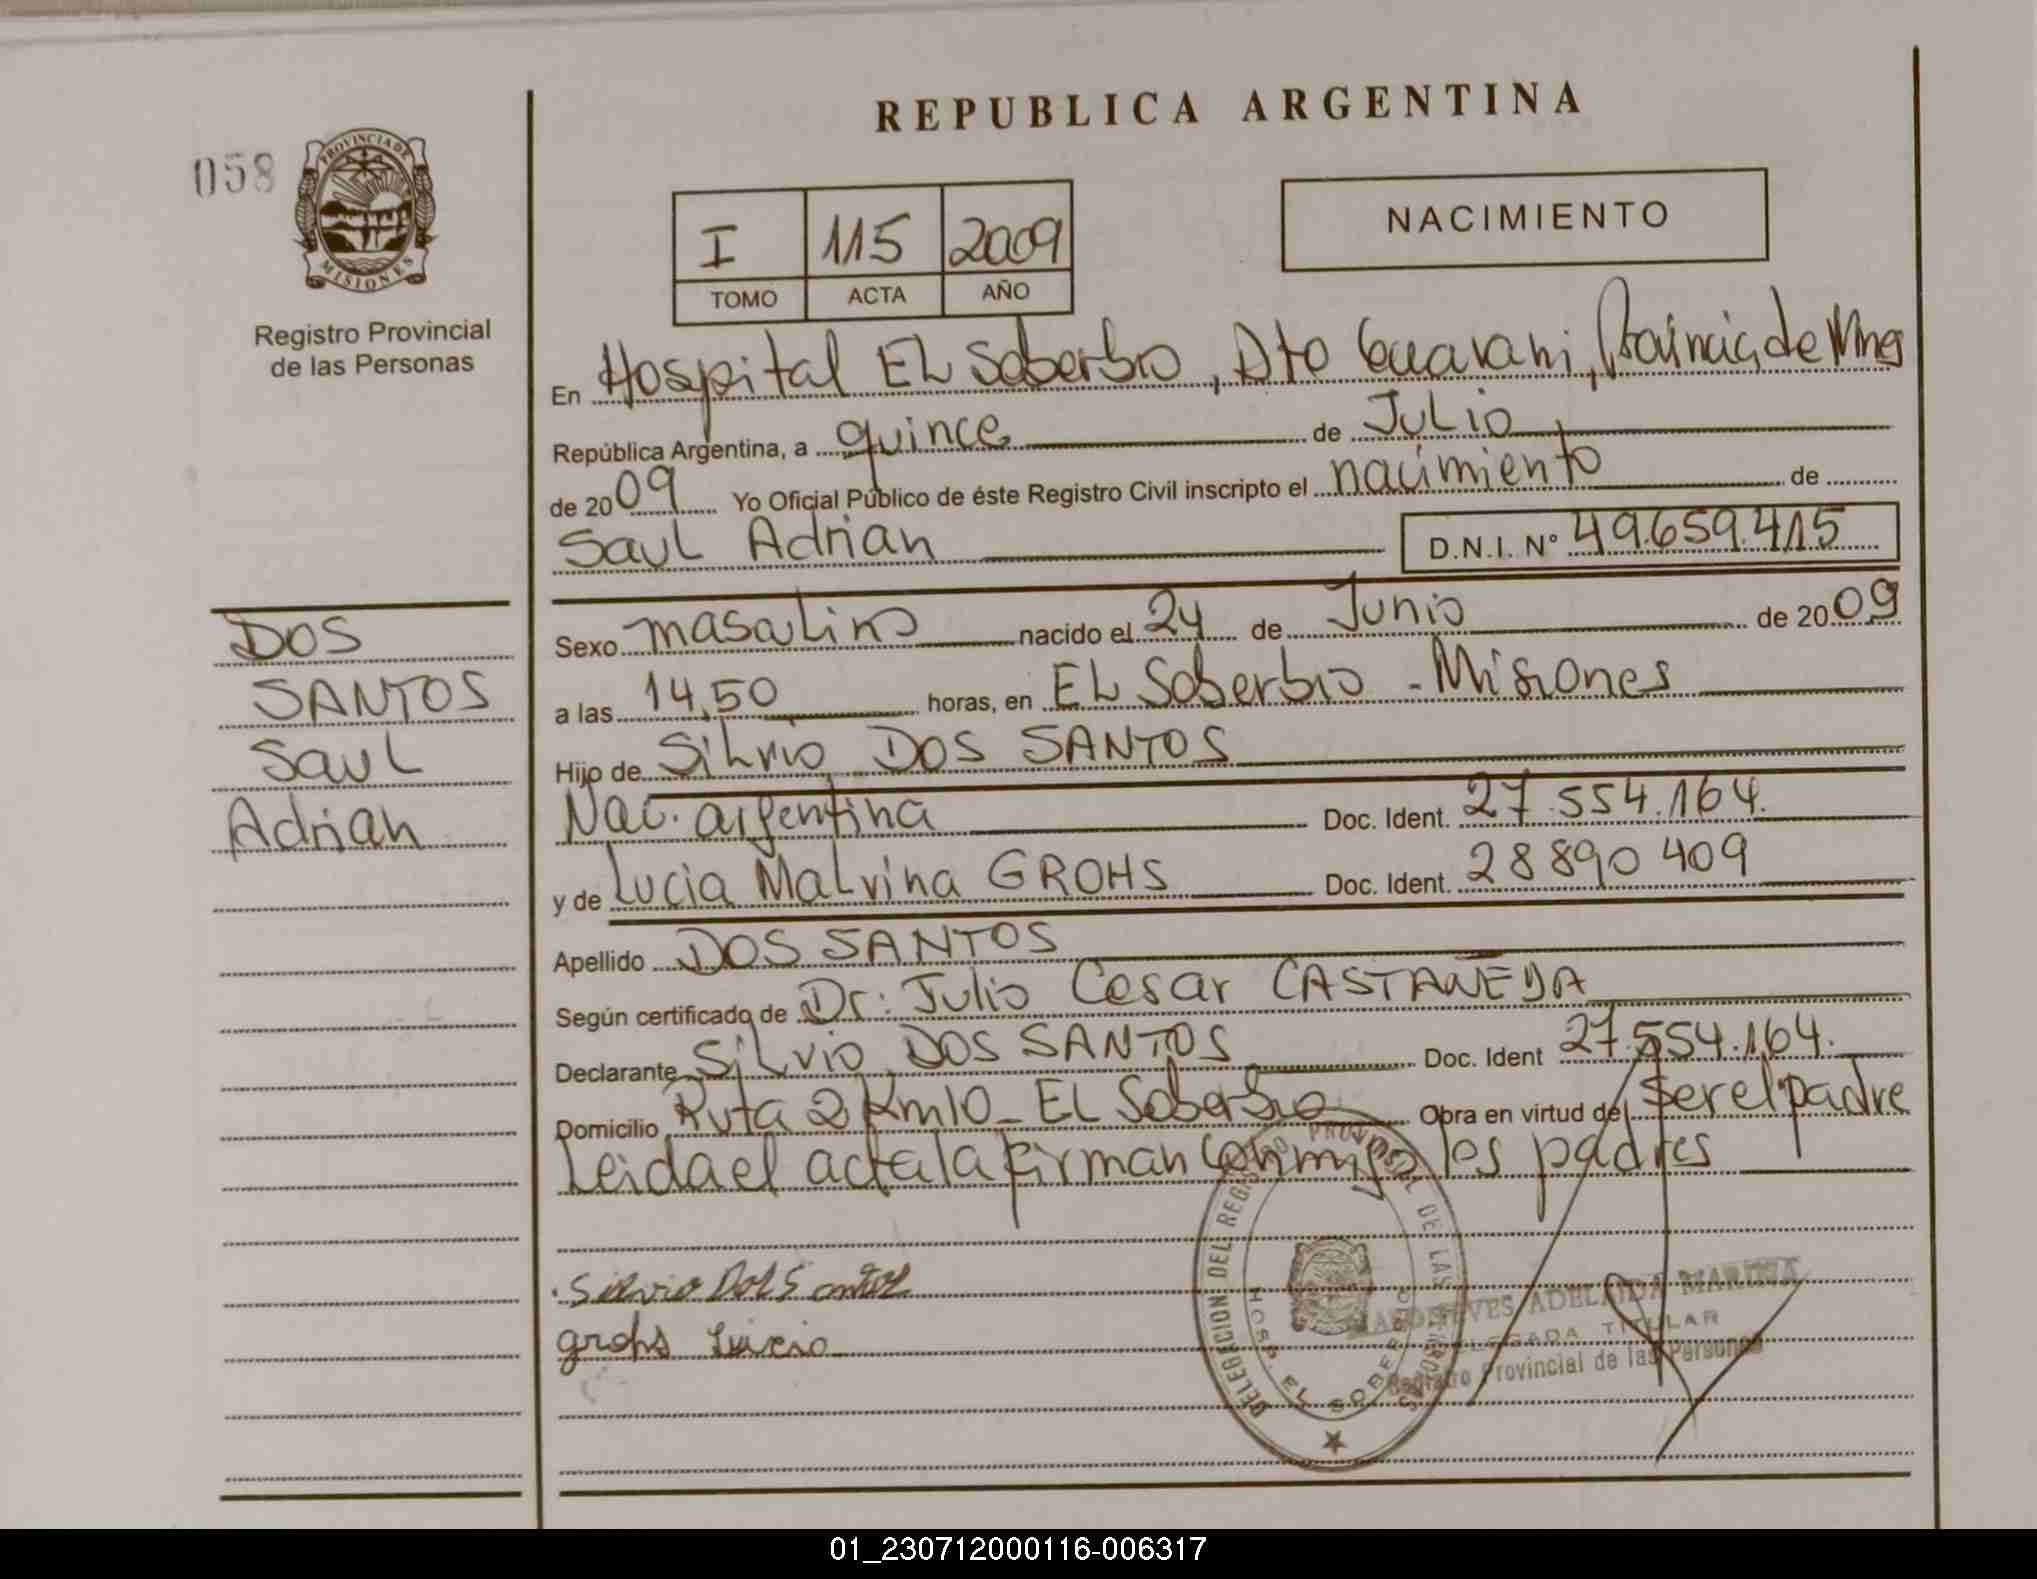 REPUBLICA ARGENTINA
058
PROVINCIA DE
MISIONES
Registro Provincial
de las Personas
I 115 2009
TOMO ACTA AÑO
NACIMIENTO
En Hospital EL Soberbio, Dto Guarani, Provincia de Mnes
República Argentina, a quince de Julio
de 2009 Yo Oficial Público de éste Registro Civil inscripto el nacimiento de
Saul Adrian D.N.I. Nº 49.659.415
DOS
SANTOS
Saul
Adrian
Sexo masculino nacido el 24 de Junio de 2009
a las 14,50 horas, en EL Soberbio - Misiones
Hijo de Silvio DOS SANTOS
Nac. argentina Doc. Ident. 27.554.164.
y de Lucia Malvina GROHS Doc. Ident. 28 890 409
Apellido DOS SANTOS
Según certificado de Dr: Julio Cesar CASTAÑEDA
Declarante Silvio DOS SANTOS Doc. Ident 27.554.164.
Domicilio Ruta 2 Km10 - EL Soberbio Obra en virtud de ser el padre
Leida el acta la firman conmigo los padres
Silvio Dos Santos
grohs Lucia
DELEGACION DEL REGISTRO PROVINCIAL DE LAS PERSONAS
HOSP. EL SOBERBIO
ADELAIDA MARINA
DELEGADA TITULAR
Registro Provincial de las Personas
01_230712000116-006317